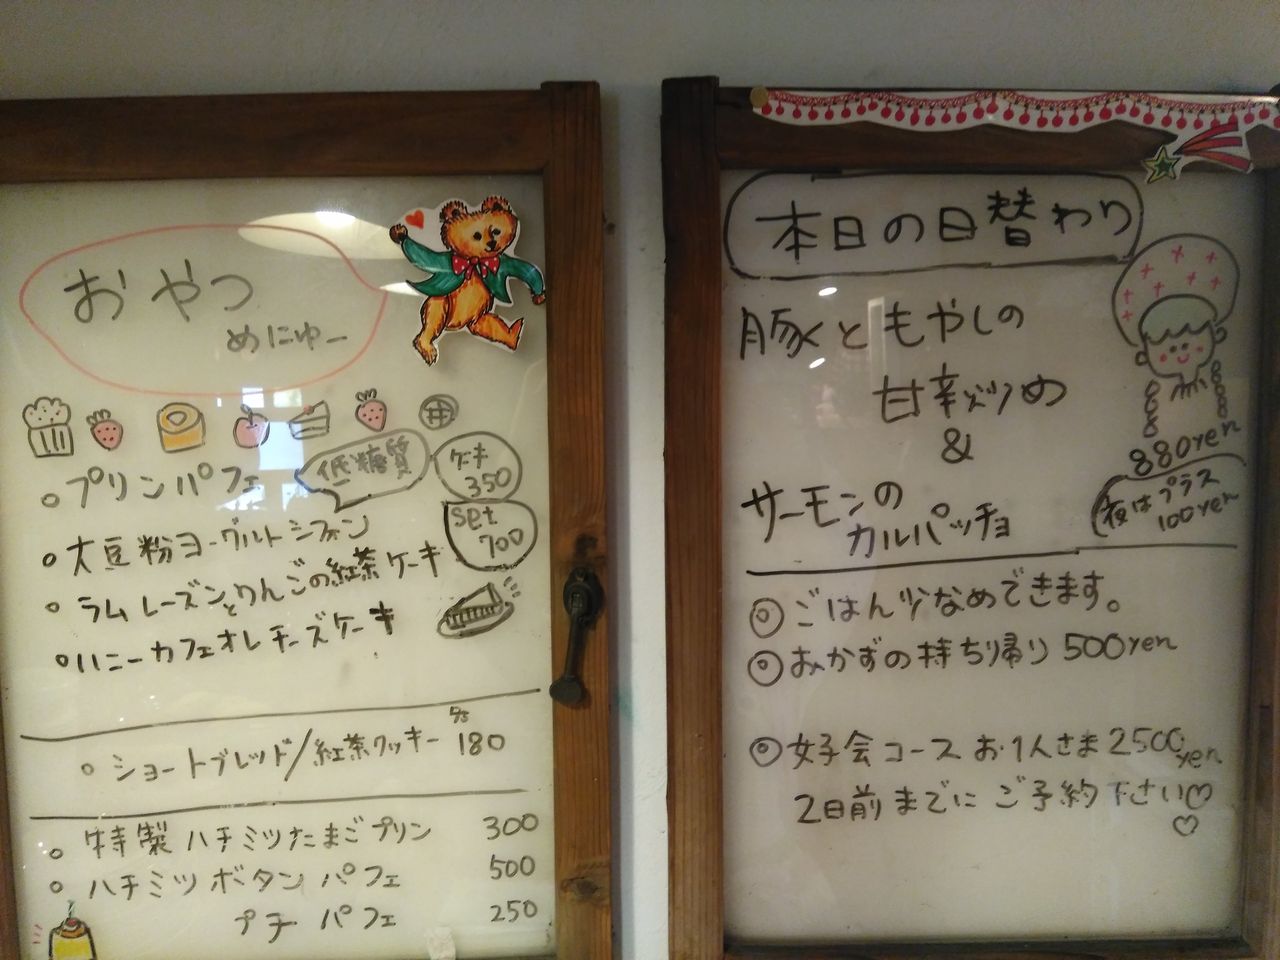 おやつ
めにゅー
プリンパフェ
低糖質
ケーキ
350
大豆粉ヨーグルトシフォン
set
700
ラムレーズンとりんごの紅茶ケーキ
ハニーカフェオレチーズケーキ
ショートブレッド/紅茶クッキー 180
特製ハチミツたまごプリン 300
ハチミツボタンパフェ 500
プチパフェ 250
本日の日替わり
豚ともやしの
甘辛炒め
&
サーモンの
カルパッチョ
880yen
夜はプラス
100yen
ごはん少なめできます。
おかずの持ち帰り 500yen
女子会コースお1人さま2500yen
2日前までにご予約下さい♡
♡